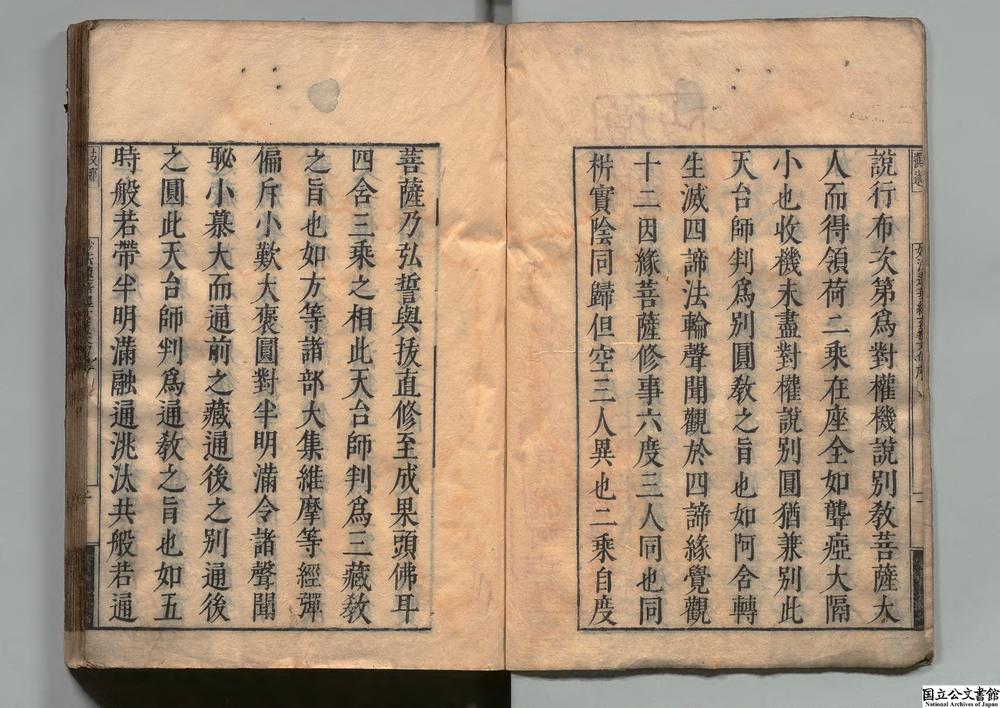 說行布次第爲對權機說別教菩薩大
人而得領荷二乘在座全如聾瘂大隔
小也收機未盡對權說別圓猶兼別此
天台師判爲別圓教之旨也如阿含轉
生滅四諦法輪聲聞觀於四諦緣覺觀
十二因緣菩薩修事六度三人同也同
析實陰同歸但空三人異也二乘自度
菩薩乃弘誓與拔直修至成果頭佛耳
四含三乘之相此天台師判爲三藏教
之旨也如方等諸部大集維摩等經彈
偏斥小歎大褒圓對半明滿令諸聲聞
恥小慕大而通前之藏通後之別通後
之圓此天台師判爲通教之旨也如五
時般若帶半明滿融通洮汰共般若通
国立公文書館
National Archives of Japan